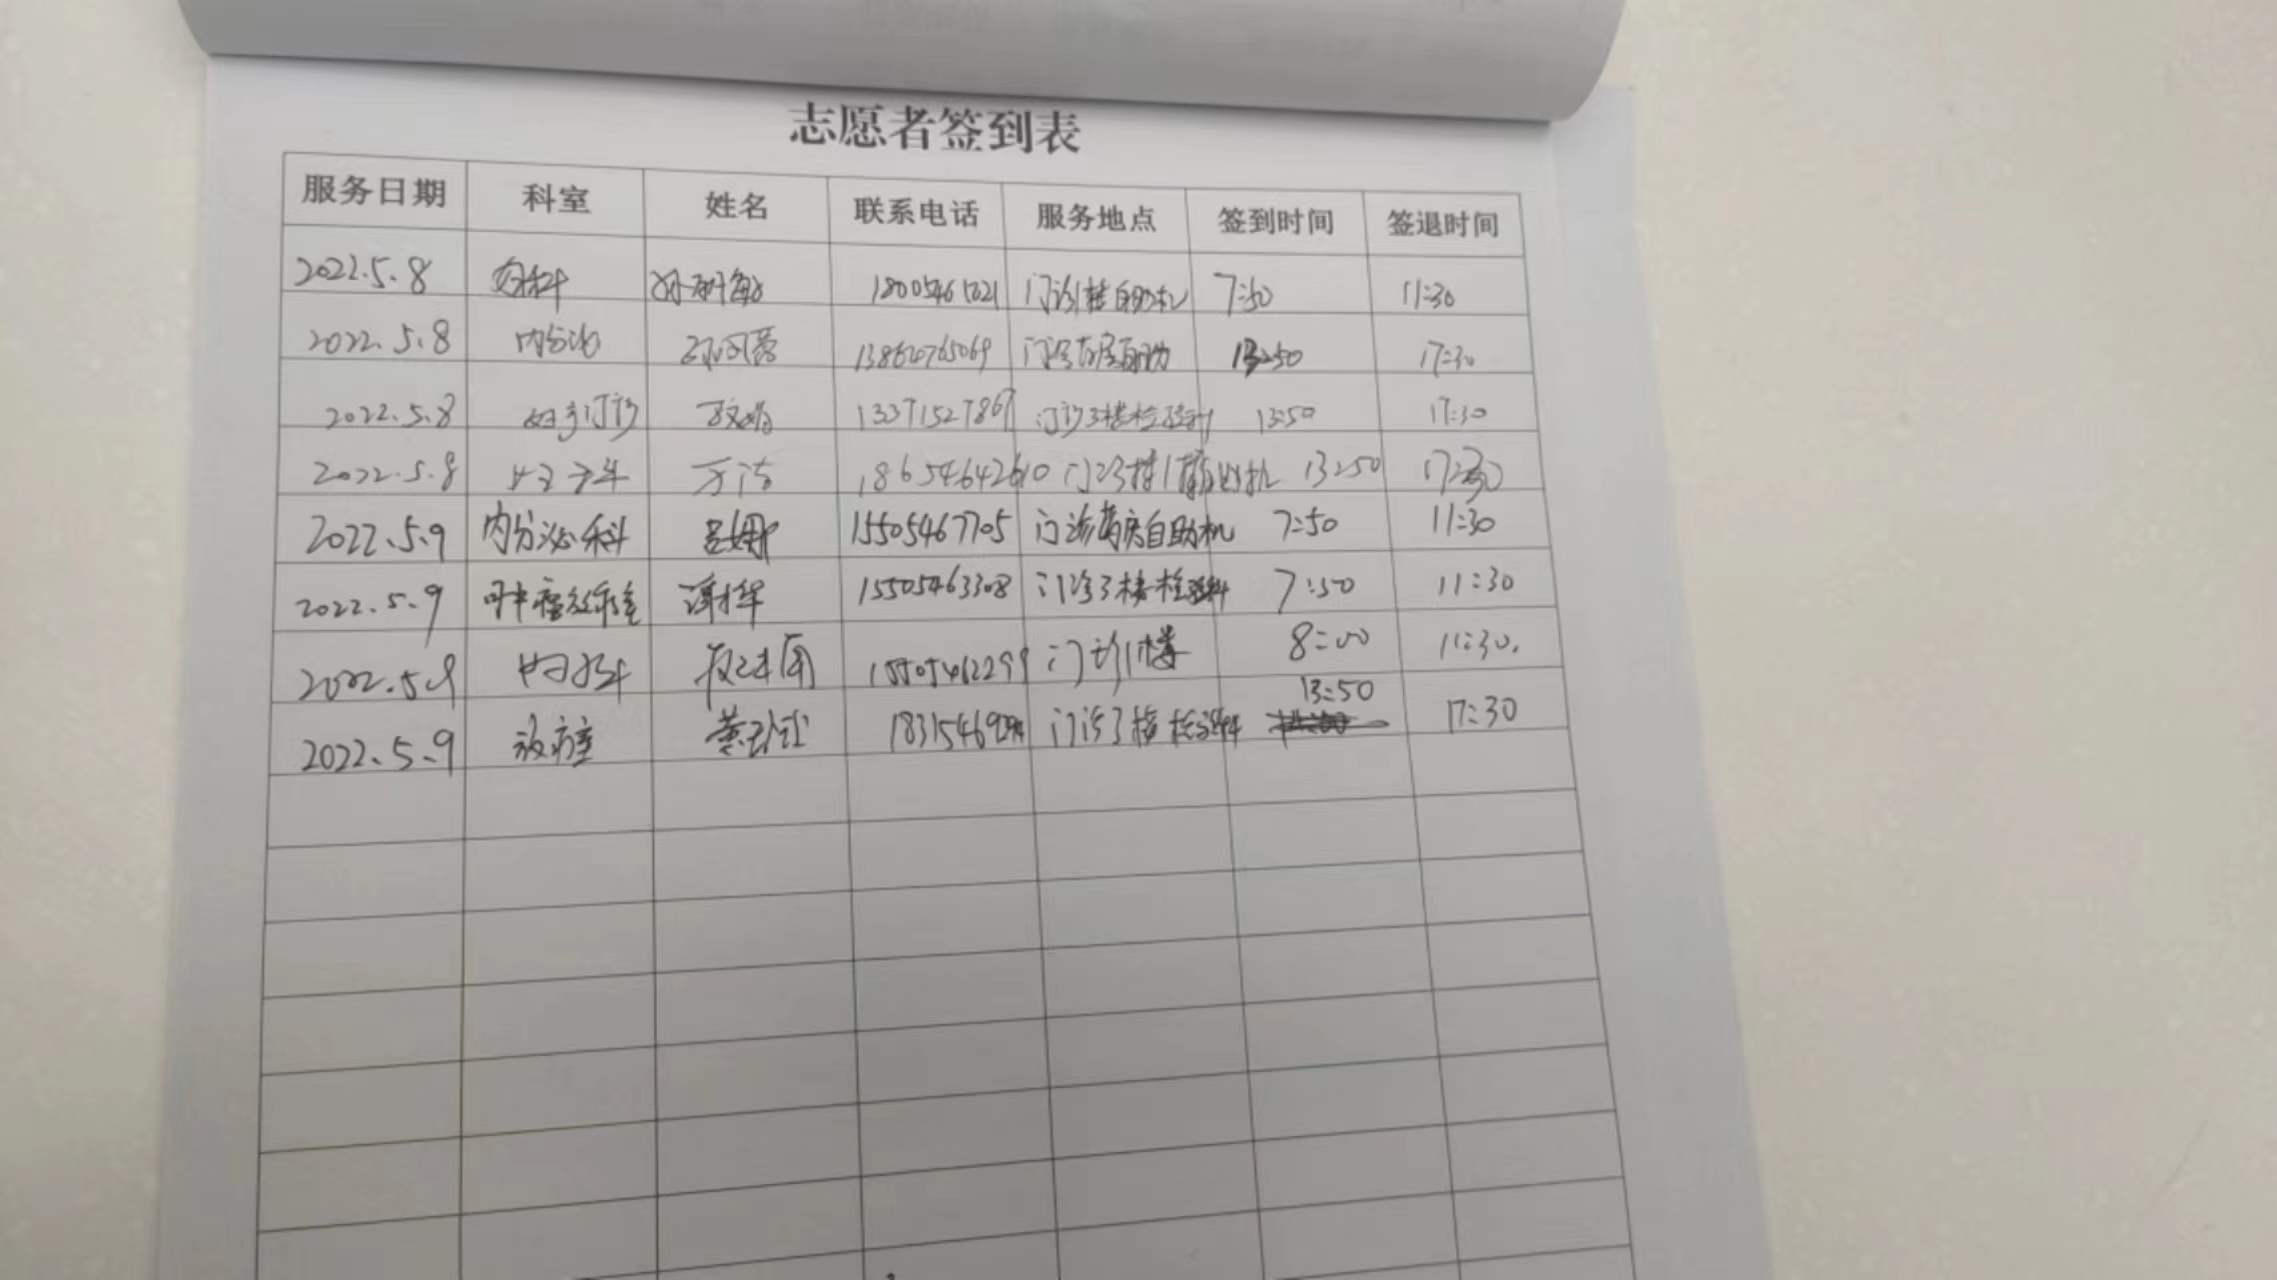 志愿者签到表
服务日期 科室 姓名 联系电话 服务地点 签到时间 签退时间
2022.5.8 门诊1楼自助机 7:50 11:30
2022.5.8 内分泌 13864765069 13:50 17:30
2022.5.8 妇产门诊 13371527867 门诊3楼检验科 13:50 17:30
2022.5.8 万洁 18654642610 13:50 17:30
2022.5.9 内分泌科 吕娜 15505467705 门诊药房自助机 7:50 11:30
2022.5.9 15505463308 门诊3楼检验科 7:50 11:30
2022.5.9 妇科 15505462299 门诊1楼 8:00 11:30.
2022.5.9 放疗室 门诊3楼检验科 13:50 17:30